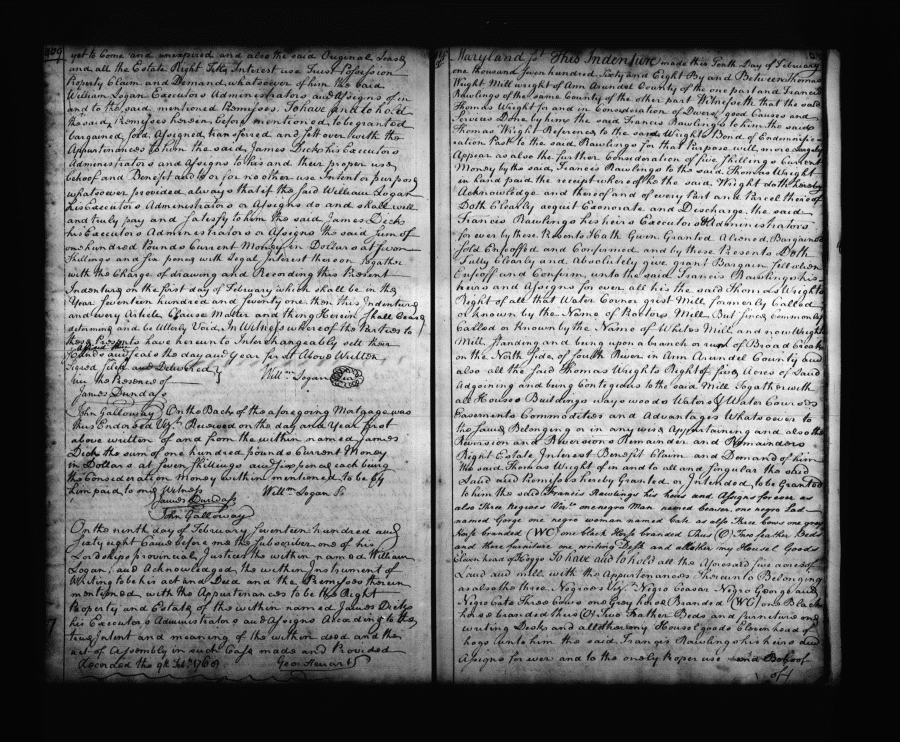 yet to Come and unexpired and also the said Original Lease
and all the Estate Right Title Interest use Trust Possession
Property Claim and Demand whatsoever of him the said
William Logan Executors Administrators and Assigns of in
and to the said mentioned Premises. To have and to hold
the said Premises herein before mentioned to be granted
bargained Sold Assigned transferred and Sett over with the
Appurtenances to him the said James Dick his Executors
Administrators and Assigns to his and their proper use
behoof and Benefit and to or for no other use Intent or purpose
whatsoever provided always that if the said William Logan
his Executors Administrators or Assigns do and shall well
and truly pay and Satisfy to him the said James Dick
his Executors Administrators or Assigns the said Sum of
one hundred Pounds Current Money in Dollars at seven
Shillings and six pence with Legal Interest thereon Together
with the Charge of drawing and Recording this Present
Indenture on the first day of February which shall be in the
Year Seventeen hundred and seventy one then this Indenture
and every Article Clause Matter and thing Herein Shall Cease
determine and be Utterly Void. In Witness whereof the Parties to
these Presents have hereunto Interchangeably sett their
hands and Seals the day and Year first Above Written
Signed Sealed and Delivered
in the Presence of Will.m Logan
James Dundass
John Galloway On the Back of the aforegoing Mortgage was
thus Endorsed Viz.t Received on the day and Year first
above written of and from the within named James
Dick the sum of one hundred pounds Current Money
in Dollars at seven Shillings and six pence each being
the Consideration Money within mentioned to be by
him paid to me Witness Will.m Logan
James Dundass
John Galloway
On the ninth day of February Seventeen hundred and
Sixty eight Came before me the Subscriber one of his
Lordships provincial Justices the within named William
Logan and Acknowledged the within Instrument of
Writing to be his act and Deed and the Premises therein
mentioned with the Appurtenances to be the Right
Property and Estate of the within named James Dick
his Executors Administrators and Assigns According to the
true Intent and meaning of the within deed and the
act of Assembly in such Case made and Provided
Recorded the 9th Feb.y 1768 Geo: Steuart
Maryland ss This Indenture made this Tenth Day of February
one thousand seven hundred Sixty and Eight By and Between Thomas
Wright Mill wright of Ann Arundel County of the one part and Francis
Rawlings of the same County of the other part Witnesseth that the said
Thomas Wright for and in Consideration of Divers good Causes and
Services Done by him the said Francis Rawlings to him the said
Thomas Wright Reference to the said Wright Bond of Endemnific
ation Past to the said Rawlings for that Purpose will more Largely
Appear as also the further Consideration of five Shillings Current
Money by the said Francis Rawlings to the said Thomas Wright
in hand paid the receipt whereof he the said Wright doth hereby
Acknowledge and thereof and of every Part and Parcel thereof
Doth Clearly acquit Exonerate and Discharge the said
Francis Rawlings his heirs Executors & Administrators
for ever by these Presents Hath Given Granted Aliened Bargained
Sold Enfeoffed and Confirmed and by these Presents Doth
Fully Clearly and Absolutely give grant Bargain Sell alien
Enfeoff and Confirm unto the said Francis Rawlings his
heirs and Assigns for ever all his the said Thomas Wrights
Right of all that Water Corner grist Mill formerly Called
or known by the Name of Rectors Mill But since Commonly
Called or Known by the Name of Whites Mill and now Wrights
Mill standing and being upon a branch or run of Broad Creek
on the North side of South River in Ann Arundel County and
also all the said Thomas Wrights Right of five Acres of Land
Adjoining and being Contigeous to the said Mill Together with
all Houses Buildings ways woods Waters & Water Courses
Easements Commodities and Advantages Whatsoever to
the same Belonging or in any wise Appertaining and also the
Reversion and Reversions Remainder and Remainders
Right Estate Interest Benefit Claim and Demand of him
the said Thomas Wright of in and to all and singular the said
Land and Premises hereby Granted or Intended to be Granted
to him the said Francis Rawlings his heirs and Assigns for ever as
also three Negroes Viz.t one negro Man named Ceaser one negro Lad
named George one negro woman named Cate as also Three Cows one grey
horse branded (WC) one black Horse branded thus (O) Two feather Beds
and there furniture one writing Desk and all other my Housel Goods
Eleven head of Hoggs To have and to hold all the Aforesaid five acres of
Land and mill with the Appurtenances Thereunto Belonging
as also the three Negroes Viz.t Negro Ceasar Negro George and
Negro Cate Three Cows one Grey horse Branded (WC) one Black
horse branded thus (O) Two Feather Beds and furniture one
writing Desk and all other my Housel goods Eleven head of
hogs unto him the said Francis Rawlings his heirs and
Assigns for ever and to the onely Proper use and Behoof
of